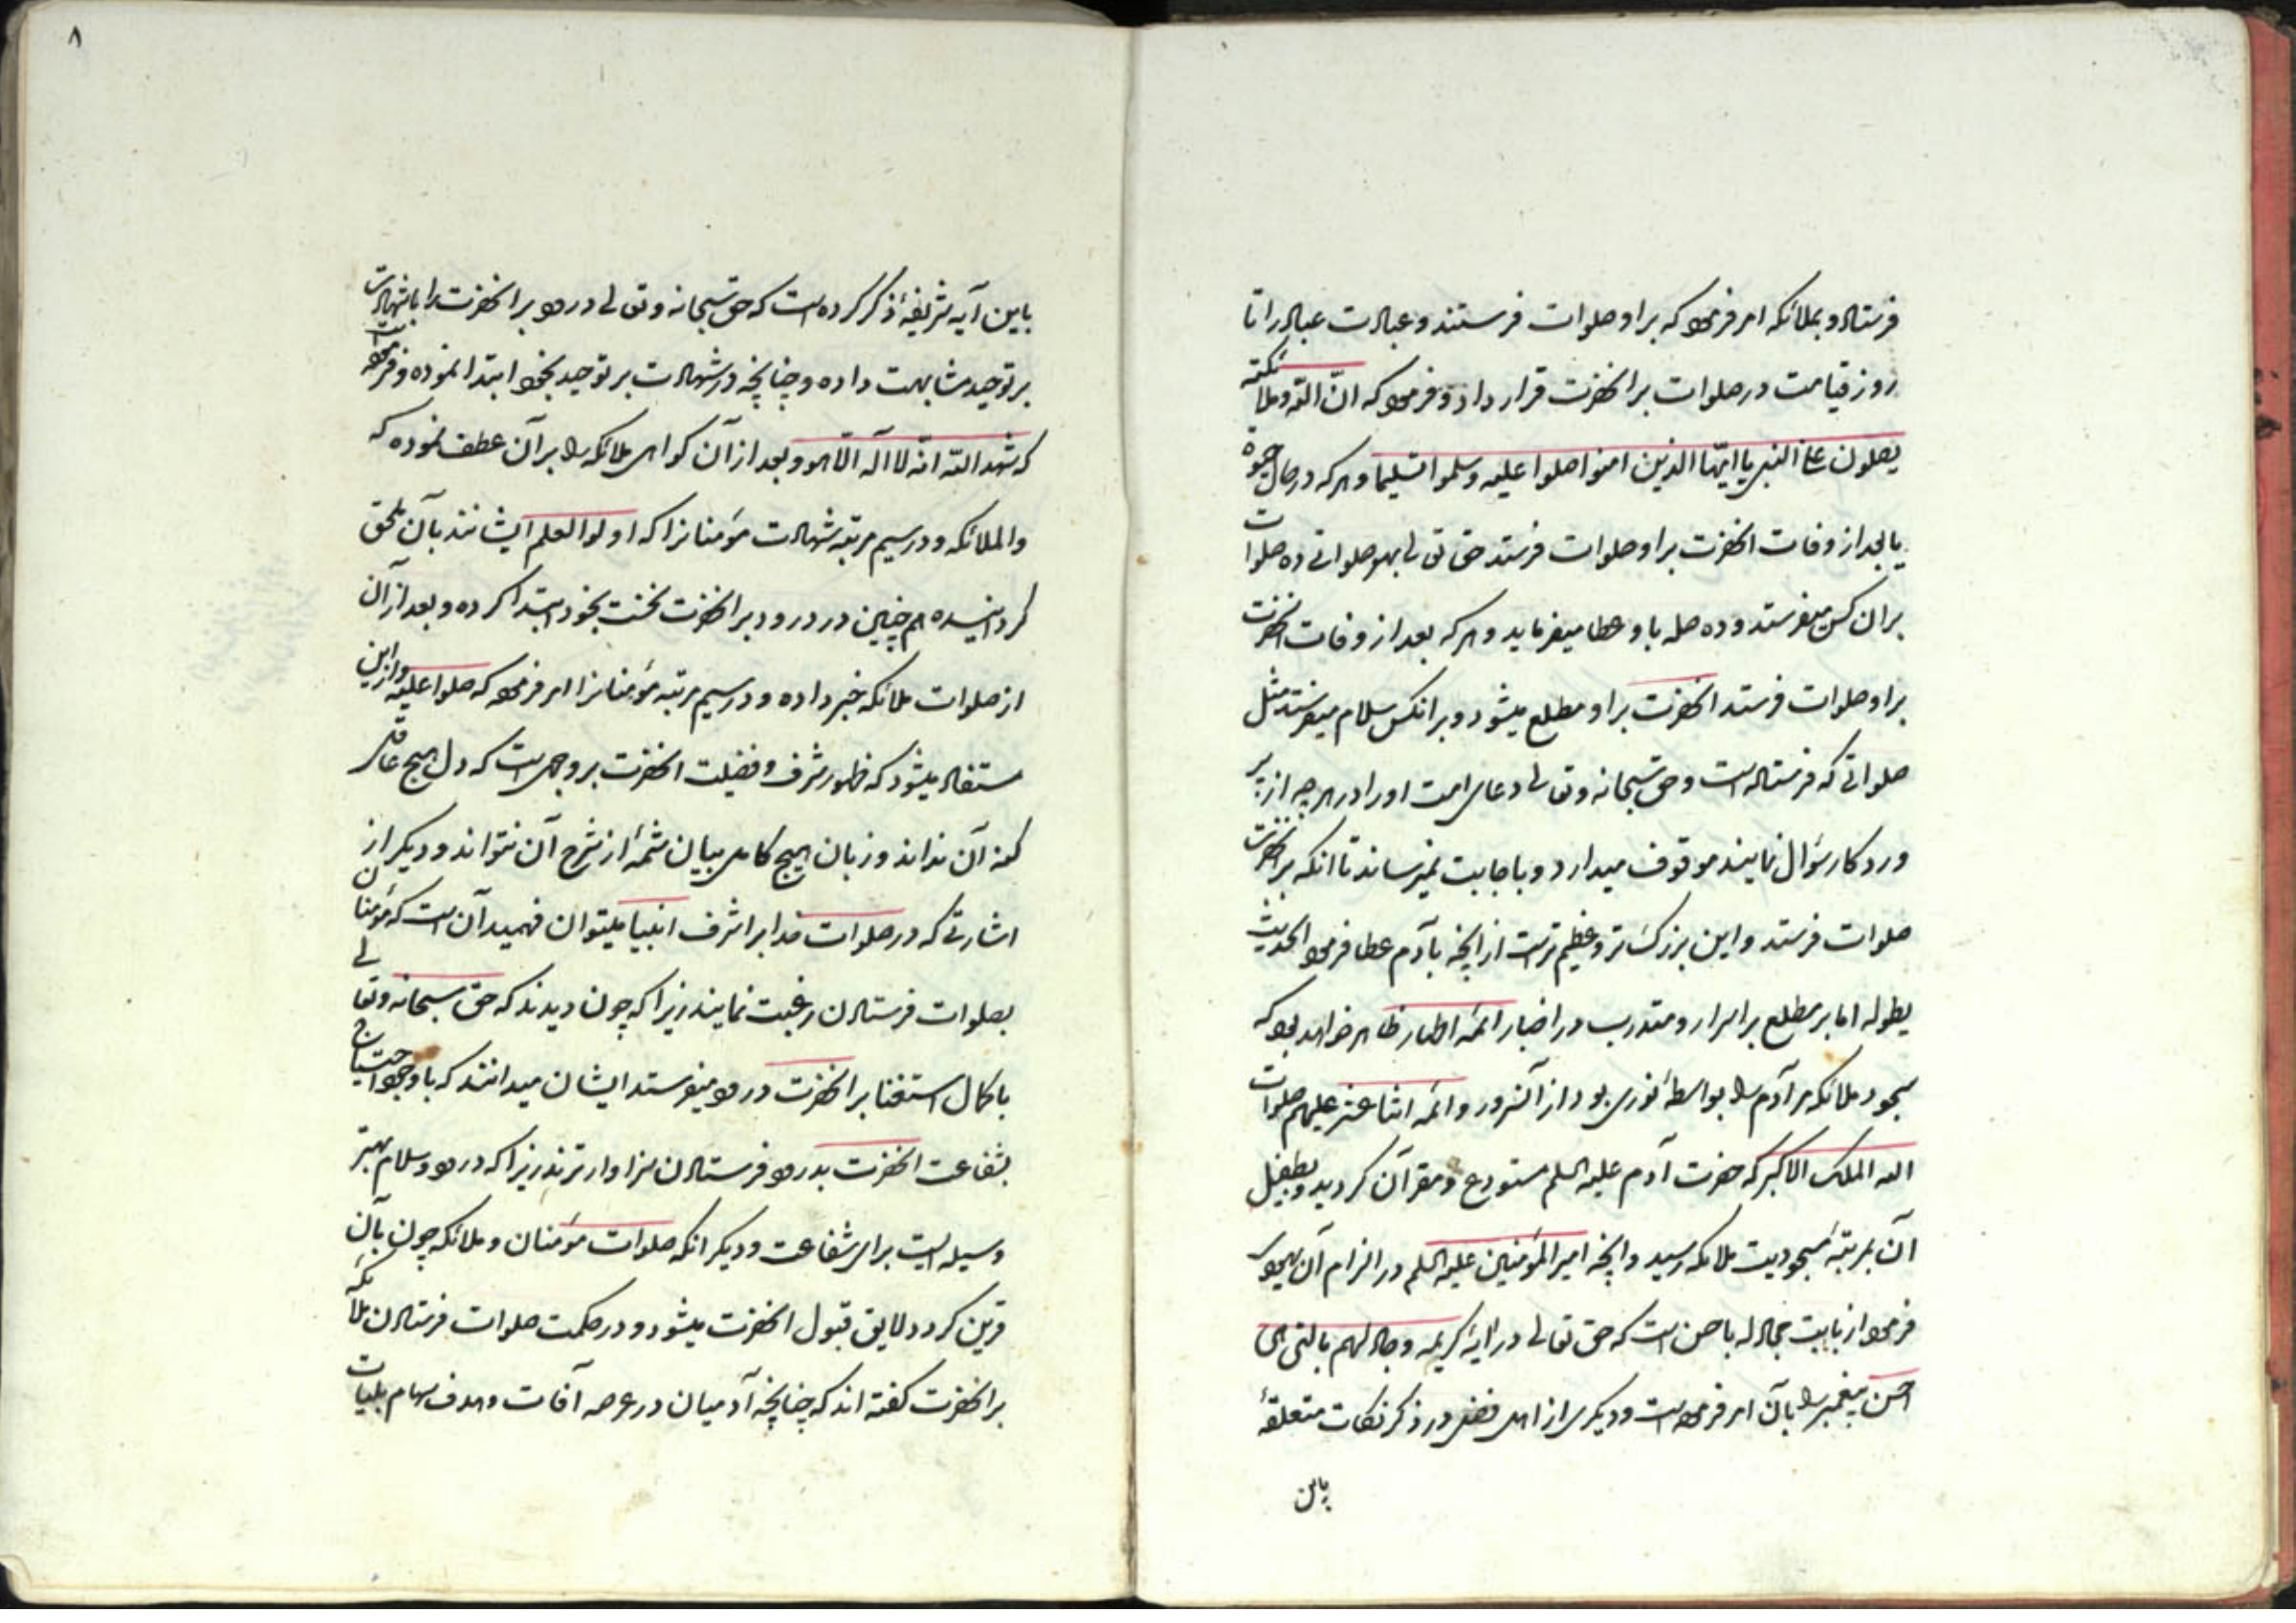 فرستاده و بملائکه امر فرموده که بر او صلوات فرستند و عبادت عباد را تا
روز قیامت در صلوات بر انحضرت قرار داد و فرموده که انّ اللّه و ملائکته
یصلون علی النبی یا ایّها الذین امنوا صلوا علیه و سلموا تسلیما و هر که در حال حیوة
یا بعد از وفات انحضرت بر او صلوات فرستد حق تعالی بهر صلواتی ده صلوات
بران کس میفرستد و ده صله باو عطا میفرماید و هر که بعد از وفات انحضرت
بر او صلوات فرستد انحضرت بر او مطلع میشود و بر انکس سلام میفرستد مثل
صلواتی که فرستاده است و حق سبحانه و تعالی دعای امت او را در هر چه از پر
وردکار سؤال نمایند موقوف میدارد و باجابت نمیرساند تا انکه بر انحضرت
صلوات فرستد و این بزرکتر و عظیم تر است از انچه بآدم عطا فرموده الحدیث
بطوله اما بر مطلع بر اسرار و متدرب در اخبار ائمه اطهار ظاهر خواهد بود که
سجود ملائکه مر آدم را بواسطهٔ نوری بود از آنسرور و ائمه اثنا عشر علیهم صلوات
الله الملک الاکبر که حضرت آدم علیه السلم مستودع و مقر آن کردید و بطفیل
آن بمرتبهٔ مسجودیت ملائکه رسید و انچه امیر المؤمنین علیه السلم در الزام آن یهودی
فرموده از بابت مجادله باحسن است که حق تعالی در آیهٔ کریمه و جادلهم بالتی هی
احسن پیغمبر را بآن امر فرموده است و دیکری از اهل فضل در ذکر نکات متعلقهٔ
باین
۸
باین آیه شریفهٔ ذکر کرده است که حق سبحانه و تعالی درود بر انحضرت را با شهادت
بر توحید مشابهت داده و چنانچه در شهادت بر توحید بخود ابتدا نموده و فرموده است
که شهد اللّه انه لا اله الا هو و بعد از آن کواهی ملائکه را بر آن عطف نموده که
والملائکه و در سیم مرتبه شهادت مؤمنانرا که اولوا العلم ایشانند بآن ملحق
کردانیده هم چنین در درود بر انحضرت نخست بخود ابتدا کرده و بعد از آن
از صلوات ملائکه خبر داده و در سیم مرتبه مؤمنانرا امر فرموده که صلوا علیه و از این
مستفاد میشود که ظهور شرف و فضیلت انحضرت بر وجهی است که دل هیچ عاقل
کنه آن نداند و زبان هیچ کاملی بیان شمهٔ از شرح آن نتواند و دیکر از
اشارتی که در صلوات خدا بر اشرف انبیا میتوان فهمید آن است که مؤمنان
بصلوات فرستادن رغبت نمایند زیرا که چون دیدند که حق سبحانه و تعالی
با کمال استغنا بر انحضرت درود میفرستد ایشان میدانند که با وجود احتیاج
بشفاعت انحضرت بدرود فرستادن سزاوارترند زیرا که درود و سلام بهتر
وسیله ایست برای شفاعت و دیکر انکه صلوات مؤمنان و ملائکه چون بآن
قرین کردد لایق قبول انحضرت میشود و در حکمت صلوات فرستادن ملائکه
بر انحضرت کفته اند که چنانچه آدمیان در عرصه آفات و هدف سهام بلیات